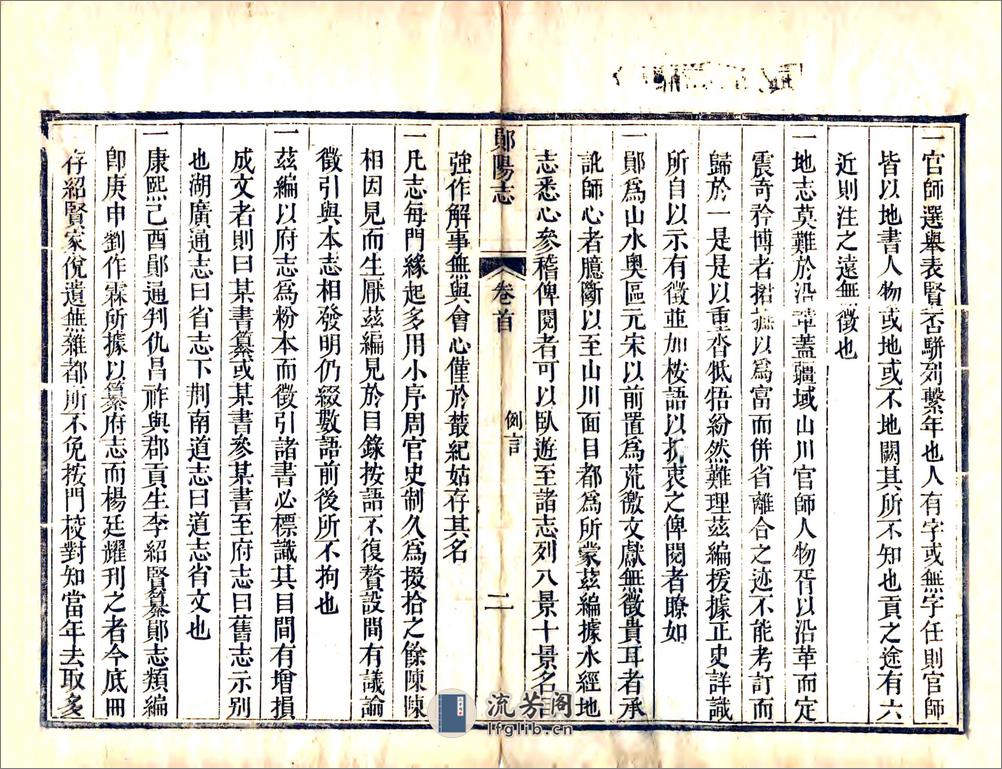 一官師選舉表賢否駢列繫年也人有字或無字任則官師
皆以地書人物或地或不地闕其所不知也貢之途有六
近則注之遠無徵也
一地志莫難於沿革蓋疆域山川官師人物胥以沿革而定
震奇矜博者捃摭以爲富而併省離合之迹不能考訂而
歸於一是是以重沓牴牾紛然難理茲編援據正史詳識
所自以示有徵並加桉語以折衷之俾閱者瞭如
一鄖爲山水奧區元宋以前置爲荒徼文獻無徵貴耳者承
訛師心者臆斷以至山川面目都爲所蒙茲編據水經地
志悉心參稽俾閱者可以臥遊至諸志列八景十景名目
強作解事無與會心僅於叢紀姑存其名
鄖陽志
卷首
例言
二
一凡志每門緣起多用小序周官史制久爲掇拾之餘陳陳
相因見而生厭茲編見於目錄按語不復贅設間有議論
徵引與本志相發明仍綴數語前後所不拘也
一茲編以府志爲粉本而徵引諸書必標識其目間有增損
成文者則曰某書纂或某書參某書至府志曰舊志示別
也湖廣通志曰省志下荆南道志曰道志省文也
一康熙己酉鄖通判仇昌祚與郡貢生李紹賢纂鄖志類編
卽庚申劉作霖所據以纂府志而楊廷耀刊之者今底冊
存紹賢家倪遺無雜都所不免按門校對知當年去取多
流芳阁
lfglib.cn